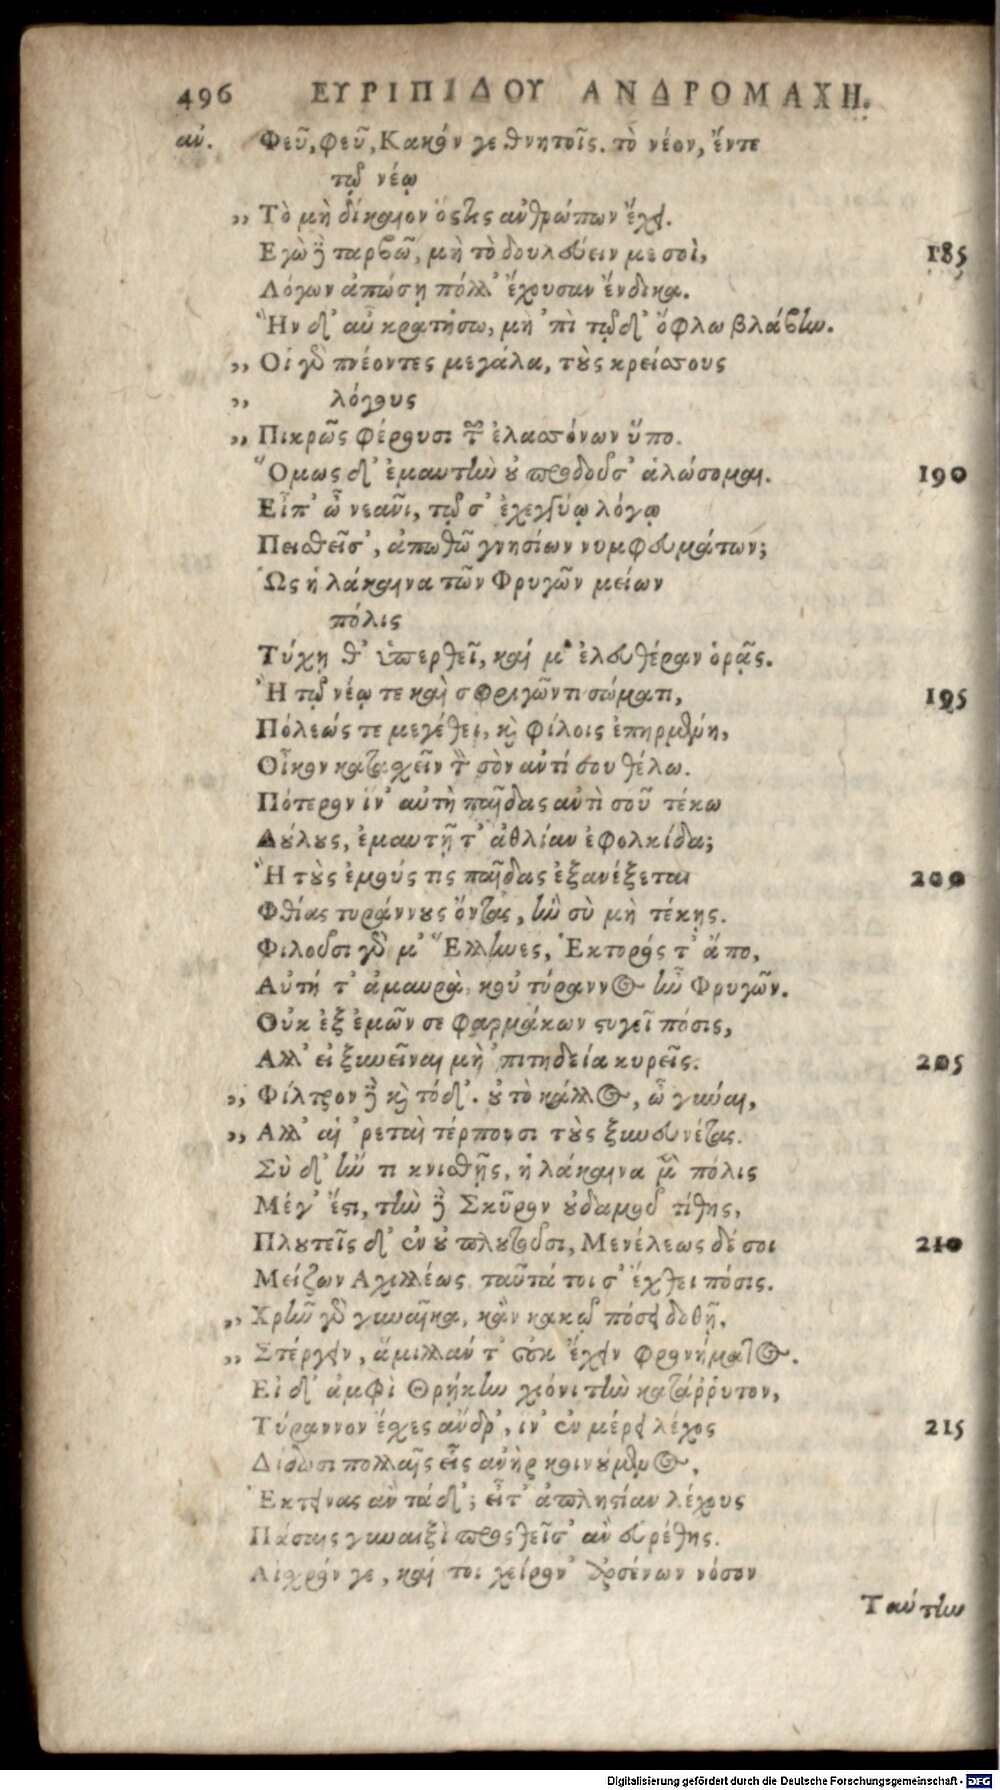 496 ΕΥΡΙΠΙΔΟΥ ΑΝΔΡΟΜΑΧΗ.
αν. Φεῦ, φεῦ, Κακόν γε θνητοῖς. τὸ νέον, ἔντε
τῷ νέῳ
,, Τὸ μὴ δίκαιον ὅστις ἀνθρώπων ἔχει.
Εγὼ δὲ ταρβῶ, μὴ τὸ δουλεύειν με σοὶ, 185
Λόγων ἀπώσῃ πόλλ' ἔχουσαν ἔνδικα.
Ἢν δ' αὖ κρατήσω, μὴ 'πὶ τῷδ' ὄφλω βλάβην.
,, Οἱ γὰρ πνέοντες μεγάλα, τοὺς κρείσσους
,, λόγους
,, Πικρῶς φέρουσι τῶν ἐλασσόνων ὕπο.
Ὅμως δ' ἐμαυτὴν οὐ προδοῦσ' ἁλώσομαι. 190
Εἶπ' ὦ νεᾶνι, τῷ σ' ἐχεγγύῳ λόγῳ
Πεισθεῖσ', ἀπωθῶ γνησίων νυμφευμάτων;
Ὡς ἡ λάκαινα τῶν Φρυγῶν μείων
πόλις
Τύχῃ θ' ὑπερθεῖ, καί μ' ἐλευθέραν ὁρᾷς.
Ἢ τῷ νέῳ τε καὶ σφριγῶντι σώματι, 195
Πόλεώς τε μεγέθει, καὶ φίλοις ἐπηρμένη,
Οἶκον κατασχεῖν τὸν σὸν ἀντί σου θέλω.
Πότερον ἵν' αὐτὴ παῖδας ἀντὶ σοῦ τέκω
Δούλους, ἐμαυτῇ τ' ἀθλίαν ἐφολκίδα;
Ἢ τοὺς ἐμούς τις παῖδας ἐξανέξεται 200
Φθίας τυράννους ὄντας, ἢν σὺ μὴ τέκῃς.
Φιλοῦσι γάρ μ' Ἕλληνες, Ἕκτορός τ' ἄπο,
Αὐτή τ' ἀμαυρὰ, κοὐ τύραννος ἦν Φρυγῶν.
Οὐκ ἐξ ἐμῶν σε φαρμάκων στυγεῖ πόσις,
Αλλ' εἰ ξυνεῖναι μὴ 'πιτηδεία κυρεῖς. 205
,, Φίλτρον δὲ καὶ τόδ'. οὐ τὸ κάλλος, ὦ γύναι,
,, Αλλ' αἱ 'ρεταὶ τέρπουσι τοὺς ξυνευνέτας.
Σὺ δ' ἤν τι κνισθῇς, ἡ λάκαινα μὲν πόλις
Μέγ' ἔστι, τὴν δὲ Σκῦρον οὐδαμοῦ τίθης,
Πλουτεῖς δ' ἐν οὐ πλουτοῦσι, Μενέλεως δέ σοι 210
Μείζων Αχιλλέως. ταῦτά τοι σ' ἔχθει πόσις.
,, Χρὴν γὰρ γυναῖκα, κἂν κακῷ πόσει δοθῇ,
,, Στέργειν, ἅμιλλάν τ' οὐκ ἔχειν φρονήματος.
Εἰ δ' ἀμφὶ Θρῄκην χιόνι τὴν κατάῤῥυτον,
Τύραννον ἔσχες ἄνδρ', ἵν' ἐν μέρει λέχος 215
Δίδωσι πολλαῖς εἷς ἀνὴρ κοινούμενος,
Ἔκτεινας ἂν τάσδ'; εἶτ' ἀπληστίαν λέχους
Πάσαις γυναιξὶ προσθεῖσ' ἂν εὑρέθης.
Αἰσχρόν γε, καί τοι χείρον' ἀρσένων νόσον
Ταύτην
Digitalisierung gefördert durch die Deutsche Forschungsgemeinschaft - DFG